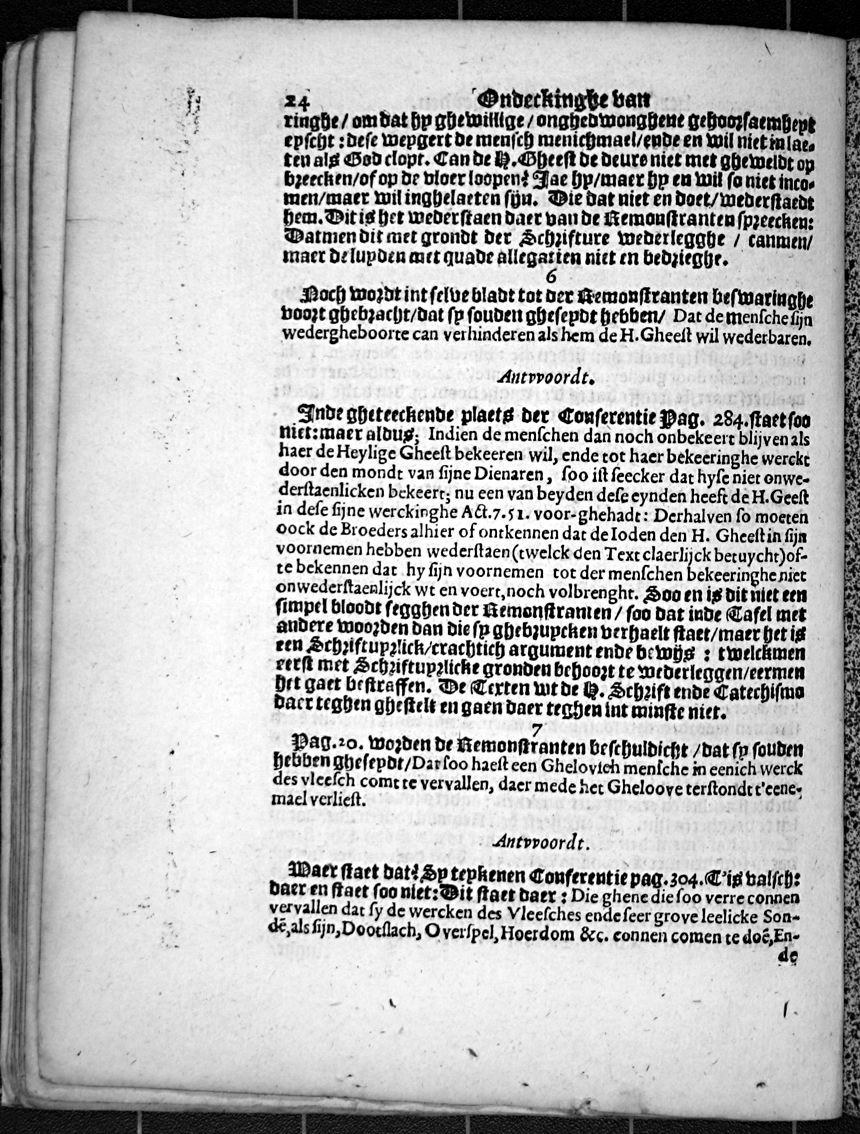 24 Ondeckinghe van
ringhe / om dat hy ghewillige / onghedwonghene gehoorsaemheyt
eyscht : dese weygert de mensch menichmael / ende en wil niet in lae-
ten als God clopt. Can de H. Gheest de deure niet met gheweldt op
breecken / of op de vloer loopen? Jae hy / maer hy en wil so niet inco-
men / maer wil inghelaeten sijn. Die dat niet en doet / wederstaedt
hem. Dit is het wederstaen daer van de Remonstranten spreecken:
Datmen dit met grondt der Schrifture wederlegghe / canmen /
maer de luyden met quade allegatien niet en bedrieghe.
6
Noch wordt int selve bladt tot der Remonstranten beswaringhe
voort ghebracht / dat sy souden gheseydt hebben / Dat de mensche sijn
wedergheboorte can verhinderen als hem de H. Gheest wil wederbaren.
Antvvoordt.
Inde gheteeckende plaets der Conferentie Pag. 284. staet soo
niet: maer aldus; Indien de menschen dan noch onbekeert blijven als
haer de Heylige Gheest bekeeren wil, ende tot haer bekeeringhe werckt
door den mondt van sijne Dienaren, soo ist seecker dat hyse niet onwe-
derstaenlicken bekeert; nu een van beyden dese eynden heeft de H. Geest
in dese sijne werckinghe Act. 7. 51. voor-ghehadt: Derhalven so moeten
oock de Broeders alhier of ontkennen dat de Ioden den H. Gheest in sijn
voornemen hebben wederstaen (twelck den Text claerlijck betuycht) of-
te bekennen dat hy sijn voornemen tot der menschen bekeeringhe niet
onwederstaenlijck wt en voert, noch volbrenght. Soo en is dit niet een
simpel bloodt segghen der Remonstranten / soo dat inde Tafel met
andere woorden dan die sy ghebruycken verhaelt staet / maer het is
een Schriftuyrlick / crachtich argument ende bewijs : twelckmen
eerst met Schriftuyrlicke gronden behoort te wederleggen / eermen
het gaet bestraffen. De Texten wt de H. Schrift ende Catechismo
daer teghen ghestelt en gaen daer teghen int minste niet.
7
Pag. 20. worden de Remonstranten beschuldicht / dat sy souden
hebben gheseydt / Dat soo haest een Ghelovich mensche in eenich werck
des vleesch comt te vervallen, daer mede het Gheloove terstondt t'eene-
mael verliest.
Antvvoordt.
Waer staet dat? Sy teykenen Conferentie pag. 304. T'is valsch:
daer en staet soo niet: Dit staet daer : Die ghene die soo verre connen
vervallen dat sy de wercken des Vleesches ende seer grove leelicke Son-
dē, als sijn, Dootslach, Overspel, Hoerdom &c. connen comen te doē, En-
de